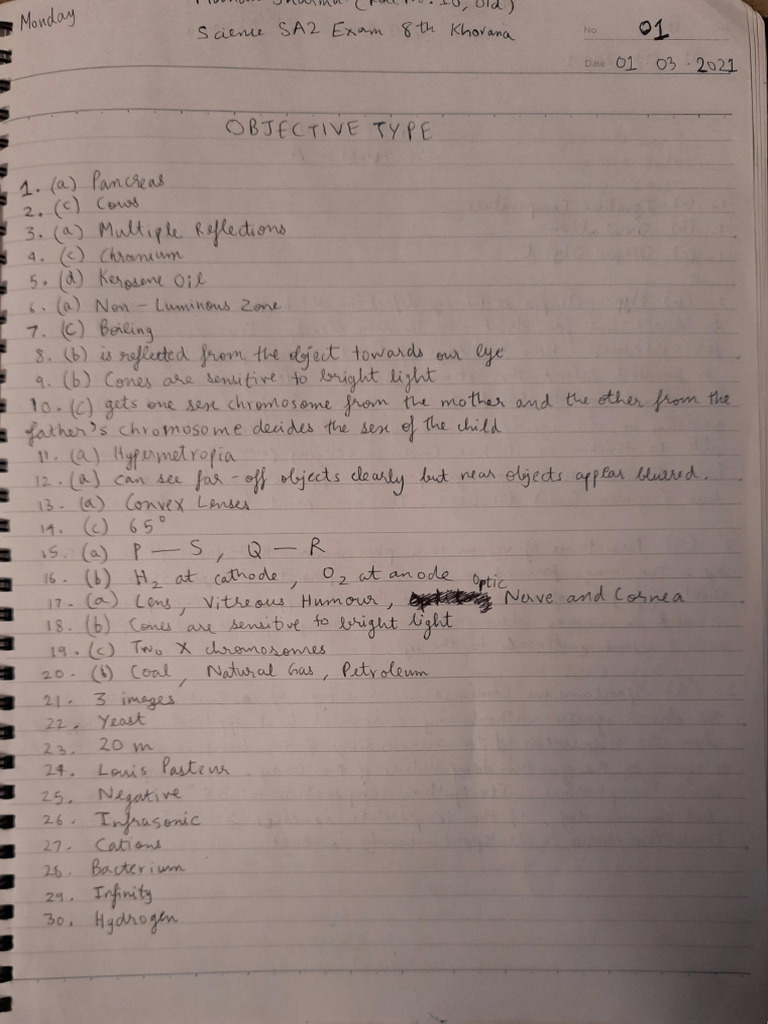 Monday
Sharma (Roll No. 10, Old)
Science SA2 Exam 8th Khorana
No. 01
Date 01 . 03 . 2021
OBJECTIVE TYPE
1. (a) Pancreas
2. (c) Cows
3. (a) Multiple Reflections
4. (c) Chromium
5. (d) Kerosene Oil
6. (a) Non - Luminous Zone
7. (c) Boiling
8. (b) is reflected from the object towards our eye
9. (b) Cones are sensitive to bright light
10. (c) gets one sex chromosome from the mother and the other from the
father's chromosome decides the sex of the child
11. (a) Hypermetropia
12. (a) can see far-off objects clearly but near objects appear blurred.
13. (a) Convex Lenses
14. (c) 65°
15. (a) P — S , Q — R
16. (b) H2 at cathode, O2 at anode
17. (a) Lens, Vitreous Humour, Optic Nerve and Cornea
18. (b) Cones are sensitive to bright light
19. (c) Two X chromosomes
20. (b) Coal, Natural Gas, Petroleum
21. 3 images
22. Yeast
23. 20 m
24. Louis Pasteur
25. Negative
26. Infrasonic
27. Cations
28. Bacterium
29. Infinity
30. Hydrogen